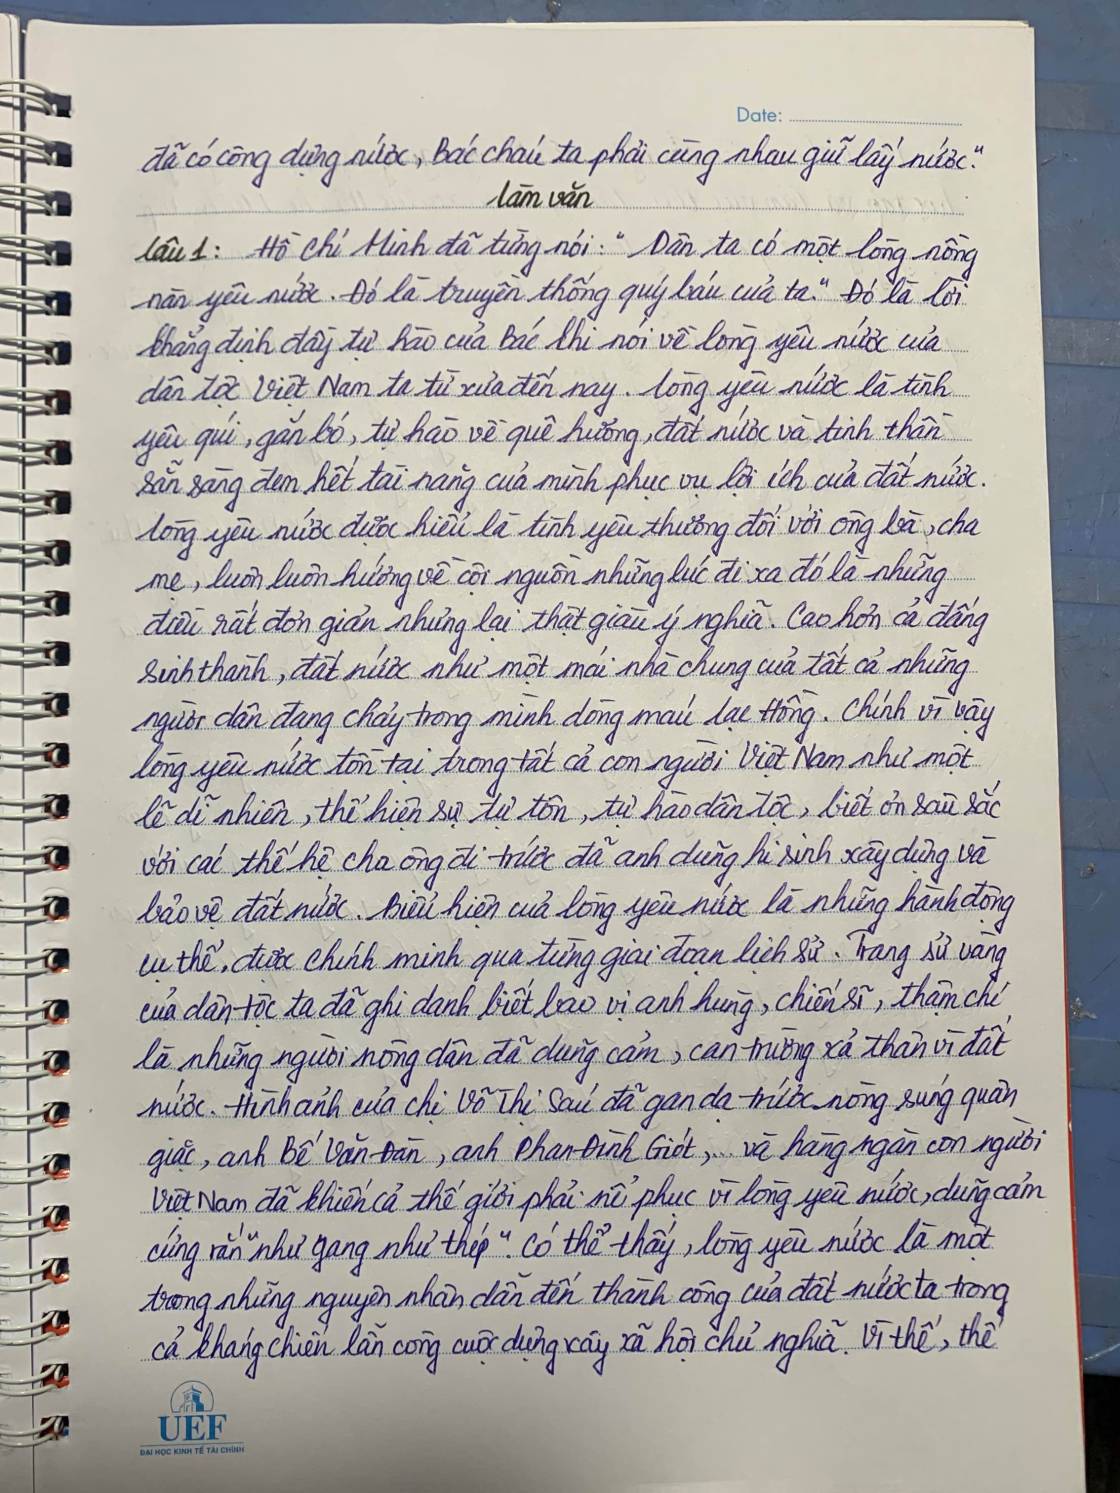 Date:
đã có công dựng nước, Bác cháu ta phải cùng nhau giữ lấy nước."
Làm văn
Câu 1: Hồ Chí Minh đã từng nói: "Dân ta có một lòng nồng
nàn yêu nước. Đó là truyền thống quý báu của ta." Đó là lời
khẳng định đầy tự hào của Bác khi nói về lòng yêu nước của
dân tộc Việt Nam ta từ xưa đến nay. Lòng yêu nước là tình
yêu quí, gắn bó, tự hào về quê hương, đất nước và tinh thần
sẵn sàng đem hết tài năng của mình phục vụ lợi ích của đất nước.
Lòng yêu nước được hiểu là tình yêu thương đối với ông bà, cha
mẹ, luôn luôn hướng về cội nguồn những lúc đi xa đó là những
điều rất đơn giản nhưng lại thật giàu ý nghĩa. Cao hơn cả đấng
sinh thành, đất nước như một mái nhà chung của tất cả những
người dân đang chảy trong mình dòng máu Lạc Hồng. Chính vì vậy
lòng yêu nước tồn tại trong tất cả con người Việt Nam như một
lẽ dĩ nhiên, thể hiện sự tự tôn, tự hào dân tộc, biết ơn sâu sắc
với các thế hệ cha ông đi trước đã anh dũng hi sinh xây dựng và
bảo vệ đất nước. Biểu hiện của lòng yêu nước là những hành động
cụ thể, được chính minh qua từng giai đoạn lịch sử. Trang sử vàng
của dân tộc ta đã ghi danh biết bao vị anh hùng, chiến sĩ, thậm chí
là những người nông dân đã dũng cảm, can trường xả thân vì đất
nước. Hình ảnh của chị Võ Thị Sáu đã gan dạ trước nòng súng quân
giặc, anh Bế Văn Đàn, anh Phan Đình Giót,... và hàng ngàn con người
Việt Nam đã khiến cả thế giới phải nể phục vì lòng yêu nước, dũng cảm
cứng rắn "như gang như thép". Có thể thấy, lòng yêu nước là một
trong những nguyên nhân dẫn đến thành công của đất nước ta trong
cả kháng chiến lẫn công cuộc dựng xây xã hội chủ nghĩa. Vì thế, thế
UEF
ĐẠI HỌC KINH TẾ TÀI CHÍNH